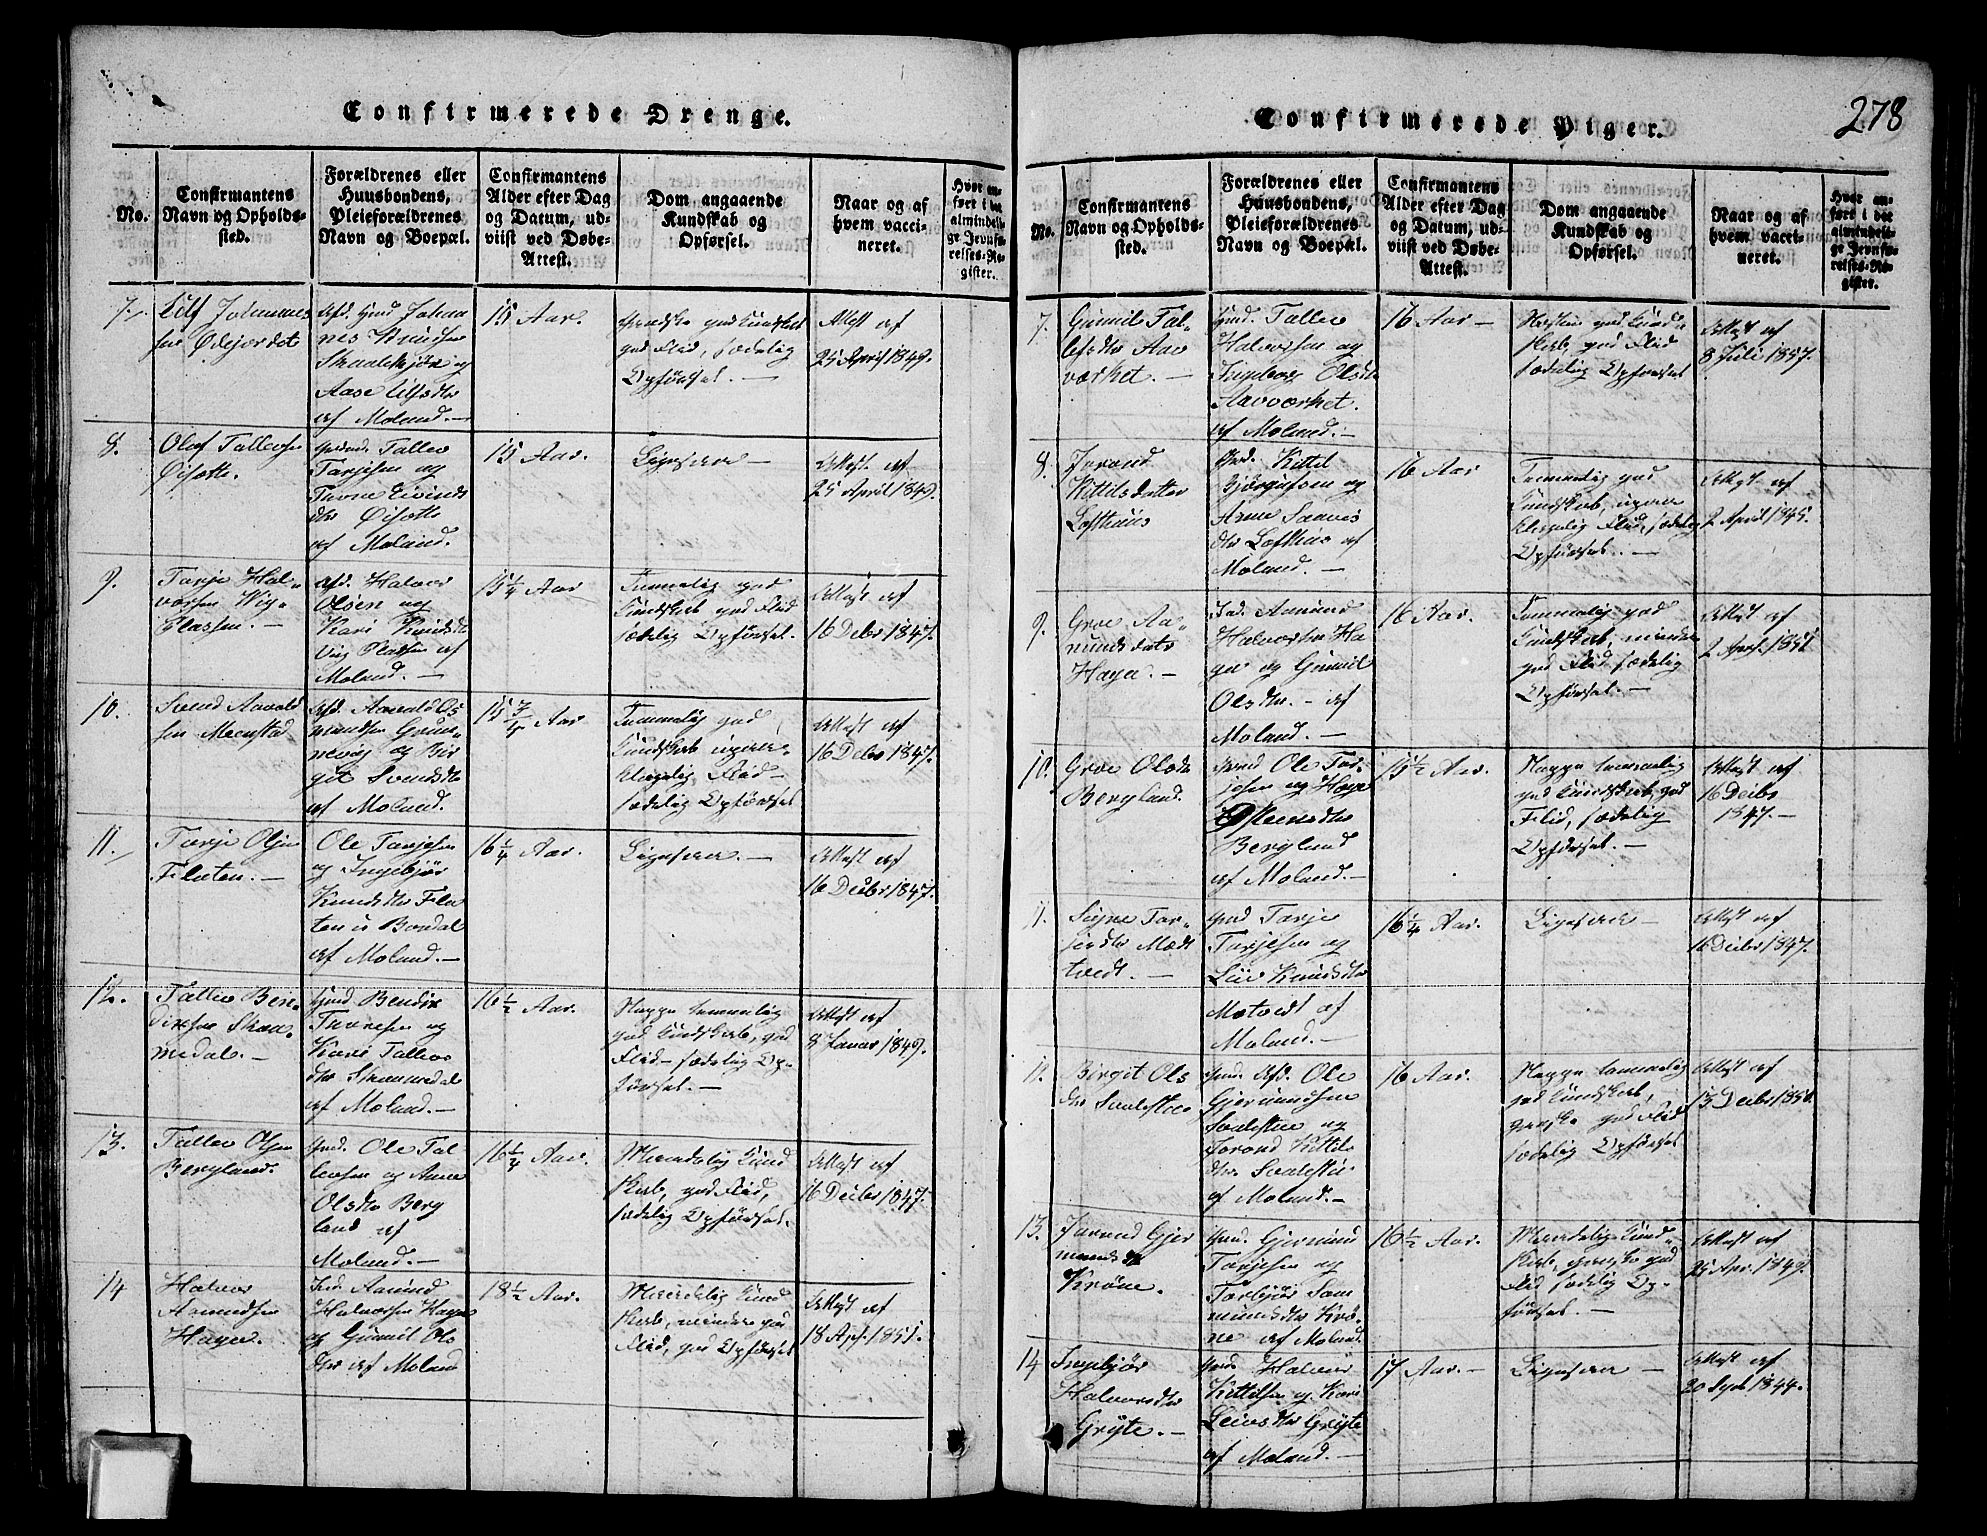 278
Confirmerede Drenge.
No.
Confirmantens
Navn og Opholds-
sted.
Forældrenes eller
Huusbondens,
Pleieforældrenes
Navn og Boepæl.
Confirmantens
Alder efter Dag
og Datum, ud-
viist ved Døbe-
Attest.
Dom angaaende
Kundskab og
Opførsel.
Naar og af
hvem vacci-
neret.
Hvor an-
ført i det
almindeli-
ge Jevnfø-
relses-Re-
gister.
7.
Ulf Johannes
sen Ødejordet
Afd. Johan
nes Knudsen
og
Aase Ulfsdtr
af Moland.—
15 Aar.
god Flid, sædelig
Opførsel.—
Attest af
25 April 1849.
8.
Olaf Tallevsen
Øisotte.
Tallev
Tarjesen og
Thone Eivinds
dtr Øisotte
af Moland.
15 Aar.
Ligesaa—
Attest af
25 April 1849.
9.
Tarje Hal-
vorsen Vig-
Plassen.—
Afd. Halvor
Olsen og
Kari Knudsdtr
Vig Plassen af
Moland.—
15 1/4 Aar
Temmelig god
Kundskab god Flid
sædelig Opførsel.
Attest af
16 Debr 1847.
10.
Svend Aavold
sen Meenstad
Afd. Aavold Os
mundsen
og Bir
git Svendsdtr
af Moland.
Temmelig god
Kundskab
Flid—
sædelig Opførsel
Attest af
16 Debr 1847.
11.
Tarje Olsen
Flaten.—
Ole Tarjesen
og Ingebjør
Knudsdtr Fla
ten i Bordal
af Moland.—
16 1/4 Aar.
Ligesaa.—
Attest af
16 Debr 1847.
12.
Tallev Ben-
dixsen Skom
medal.—
Gmd Bendix
og
Kari Tallevs
dtr Skommedal
af Moland.—
16 1/2 Aar.
Neppe temmelig
god Kundskab, god
Flid—sædelig Op-
førsel.—
Attest af
8 Januar 1849.
13.
Tallev Olsen
Bergland.
Gmd. Ole Tal-
levsen og Anne
Olsdtr Berg
land af
Moland.—
16 1/4 Aar.
Maadelig Kund
skab, god Flid,
sædelig Opførsel.
Attest af
16 Debr 1847.
14
Halvor
Aamundsen
Hagen.
Ind Aamund
Halvorsen Hagen
og Gunnil Ols
dtr af Moland
18 1/2 Aar.
Maadelig Kund
skab, mindre god
Flid, god Opførsel
Attest af
18 Apr. 1851.
Confirmerede Piger.
No.
Confirmantens
Navn og Opholds-
sted.
Forældrenes eller
Huusbondens,
Pleieforældrenes
Navn og Boepæl.
Confirmantens
Alder efter Dag
og Datum, ud-
viist ved Døbe-
Attest.
Dom angaaende
Kundskab og
Opførsel.
Naar og af
hvem vacci-
neret.
Hvor an-
ført i det
almindeli-
ge Jevnfø-
relses-Re-
gister.
7.
Gunnil Tal-
lefsdtr Aav
værket.—
Gmd. Tallev
Halvorsen og
Ingebor Olsdtr
Aavværket.
af Moland.—
16 Aar—
Næsten god Kund-
skab, god Flid
sædelig Opførsel
Attest af
8 Juli 1857.
8.
Jorond
Kittilsdatter
Lofthuus
Gmd. Kittil
Bjørgufsen og
Anne Saavis
dtr Lofthus af
Moland.—
16 Aar
Temmelig god
Kundskab,
Flid, sædelig
Opførsel.—
Attest af
2 April 1845.
9.
Groe Aa-
munds datr
Hagen.—
Ind. Aamund
Halvorsen Ha
gen og Gunnil
Olsdtr.— af
Moland.—
16 Aar.
Temmelig god
Kundskab, mindre
god Flid sædelig
Opførsel.—
Attest af
10.
Groe Olsdr
Bergland.
Gmd Ole Tar-
jesen og Hæge
Østensdtr
Bergland
af Moland.—
15 1/2 Aar.
Neppe temmelig
god Kundskab, god
Flid, sædelig
Opførsel.—
Attest af
16 Debr
1847.—
11.
Signe Tar-
Mæt
tvedt.—
Gmd Tarje
Tarjesen og
Liv Knudsdtr
Motvedt af
Moland.—
16 1/4 Aar.
Ligesaa—
Attest af
16 Debr 1847.
12.
Birgit Ols
dtr
Gmd. Afd. Ole
Gjermundsen
og
Jorond Kittils
dtr
af Moland.—
16 Aar.
Neppe temmelig
god Kundskab,
ganske god Flid
sædelig Opførsel
Attest af
13.
Jorond Gjer
mundsdtr
Krone.
Gmd. Gjermund
Tarjesen og
Torbjør Som
mundsdtr Kro-
ne af Moland.
16 1/2 Aar.
Maadelig Kund-
skab, ganske god
Flid sædelig Op-
førsel.—
Attest af
25 Apr. 1849.
14
Ingebjør
Halvorsdtr
Grøjte.—
Gmd Halvor
Kittilsen og Kari
Leivsdtr Grøjte
af Moland.—
17 Aar.—
Ligesaa—
Attest af
20 Sept 1844.